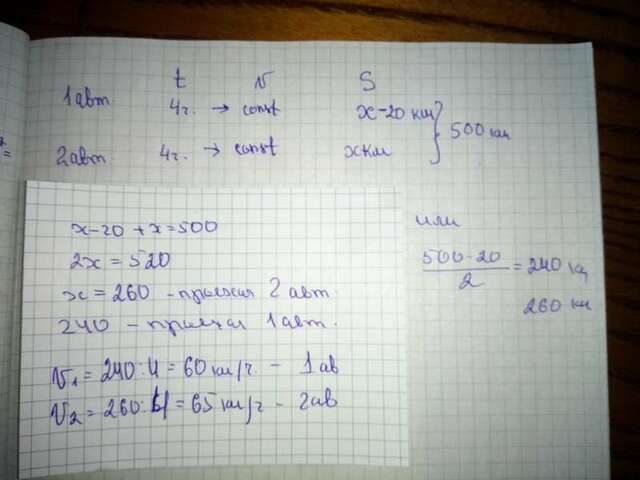 t v S
1авт. 4г. → const x-20 км
500 км
2авт. 4г. → const x км
x-20+x=500
2x=520
x=260 - приехал 2 авт.
240 - приехал 1 авт.
V₁=240:4=60 км/г - 1ав
V₂=260:4=65 км/г - 2ав
или
500-20
2
=240 км
260 км